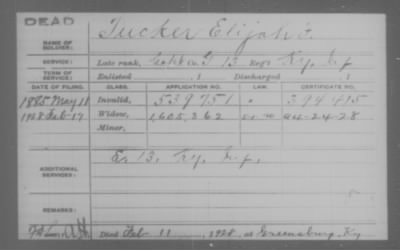 DEAD
NAME OF SOLDIER: Tucker Elijah F.
SERVICE: Late rank, Co. G 13, Reg't Ky. Inf
TERM OF SERVICE: Enlisted , 1 Discharged , 1
DATE OF FILING. CLASS. APPLICATION NO. LAW. CERTIFICATE NO.
1885 May 11 Invalid, 539751 394415
1928 Feb 17 Widow, 1,605,362 a4-24-28
Minor,
ADDITIONAL SERVICES: E, 13, Ky, Inf,
REMARKS:
Died Feb 11, 1928, at Greensburg, Ky